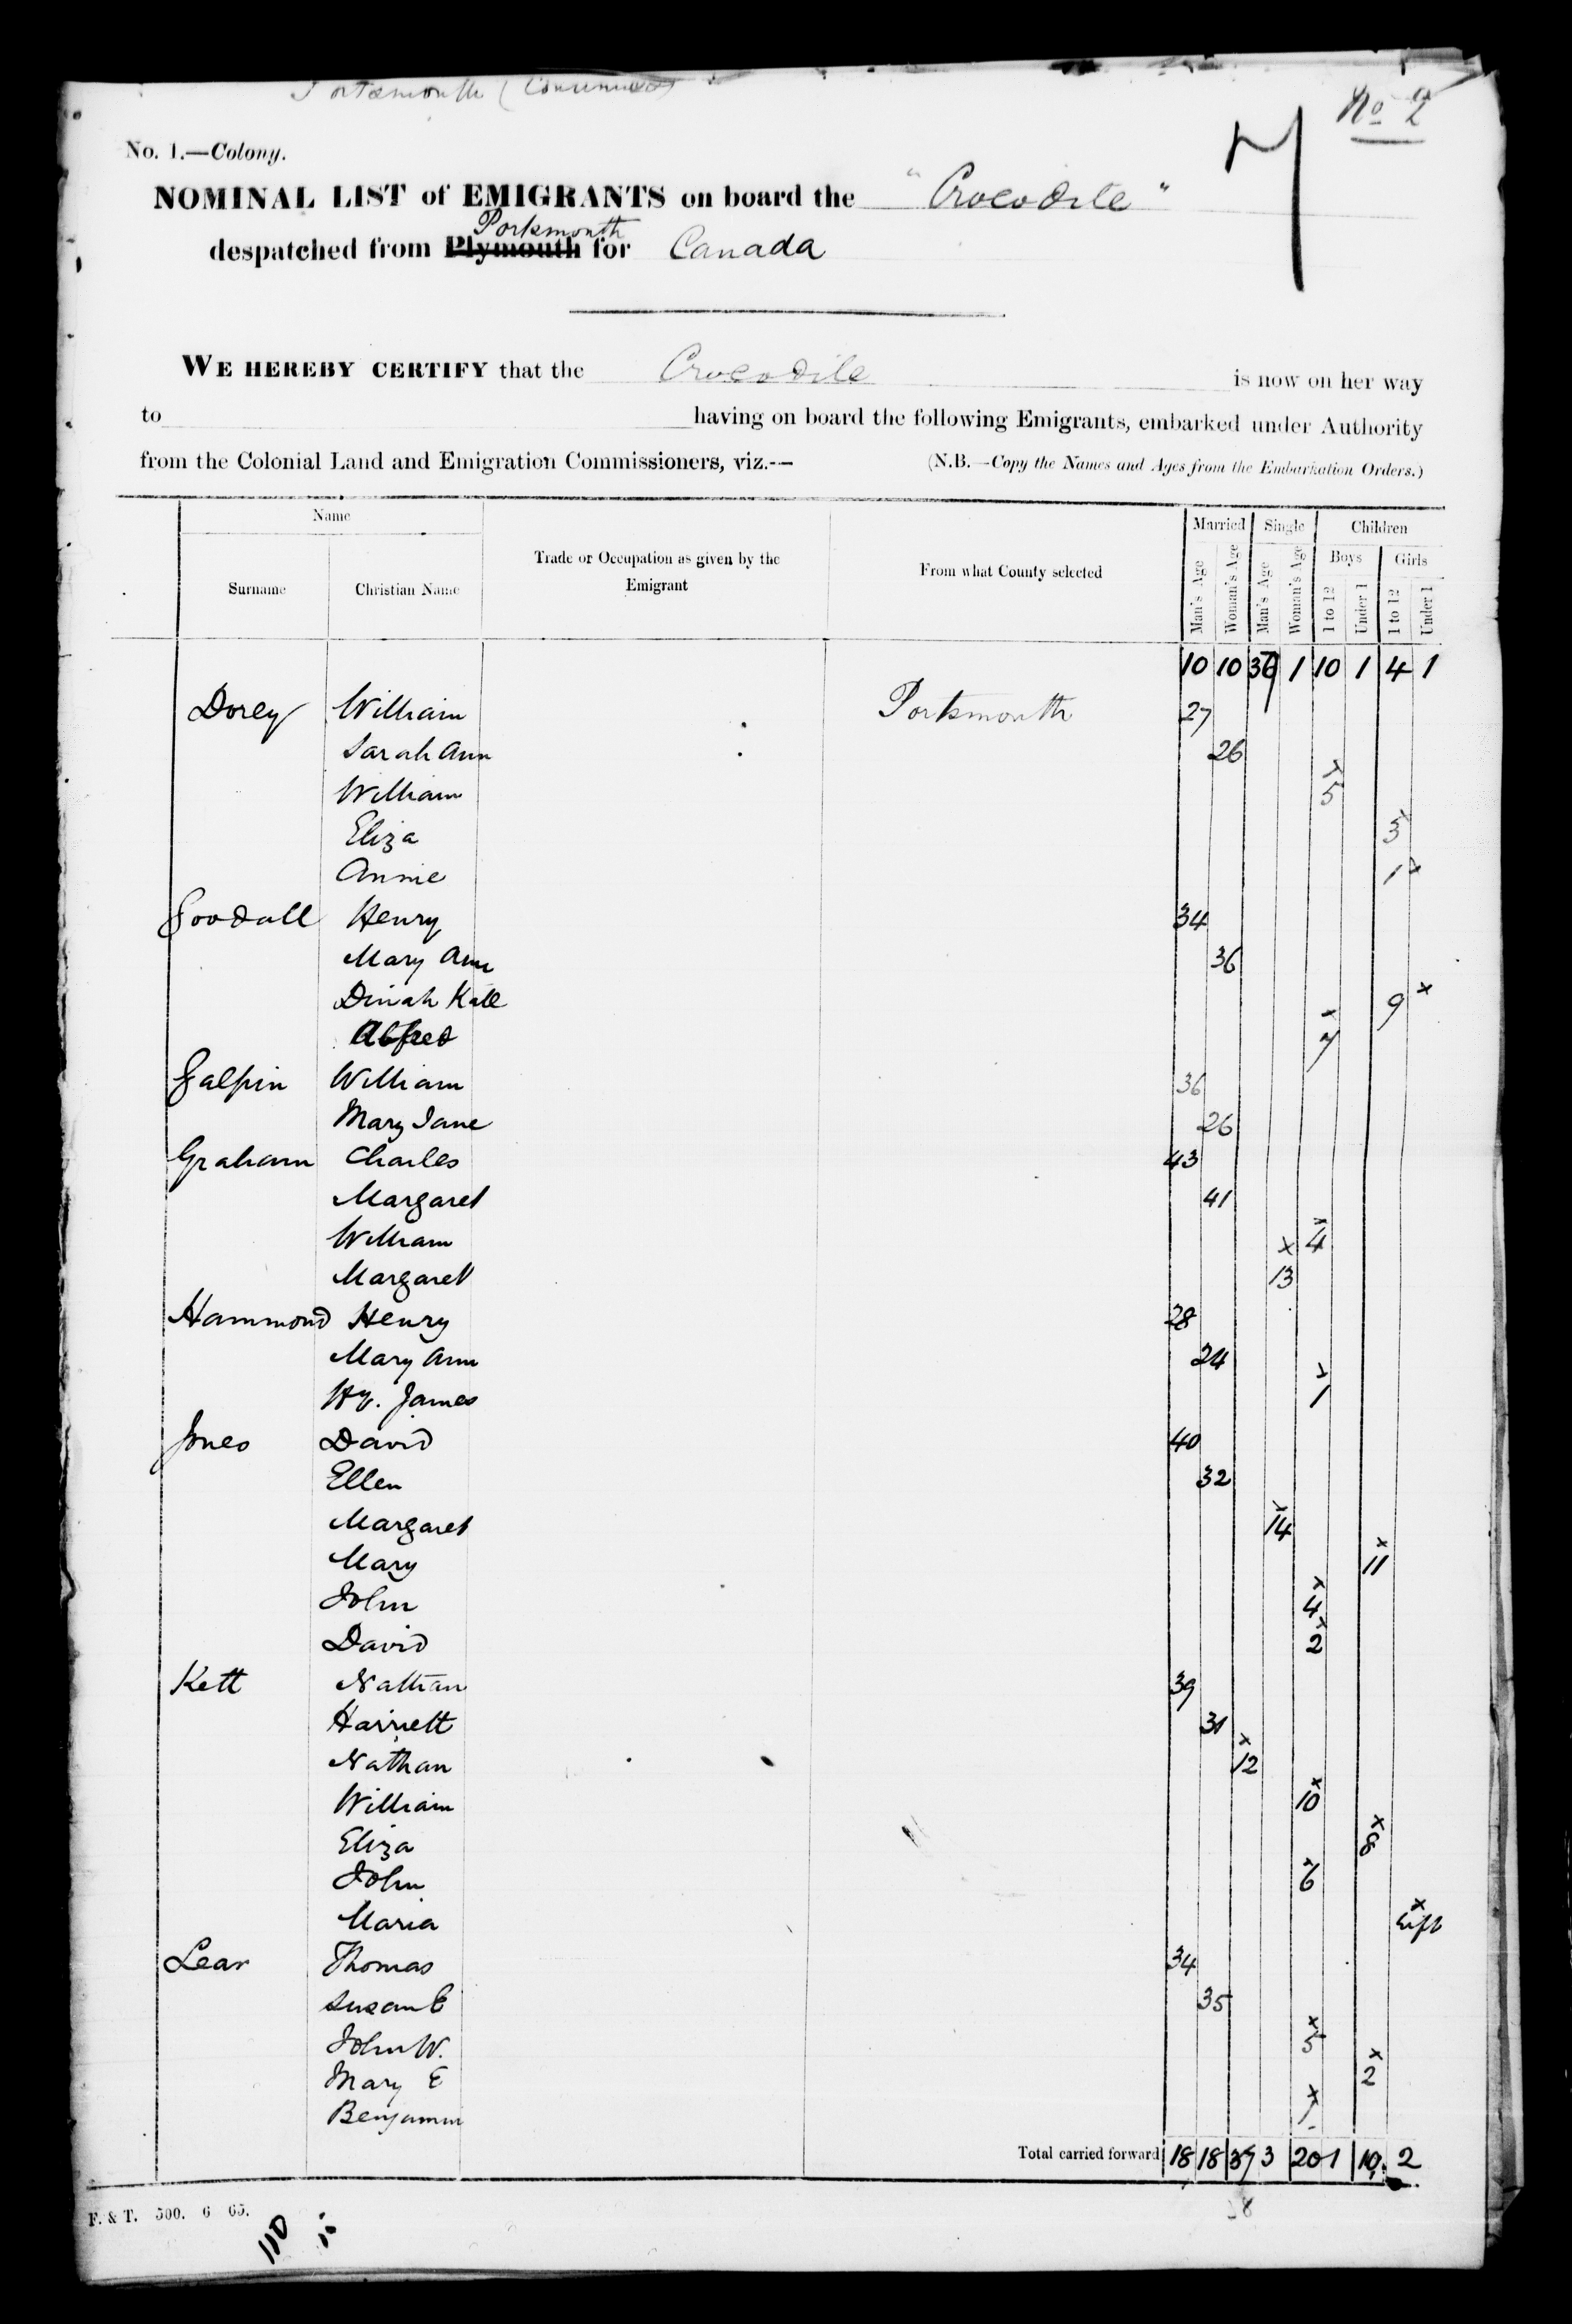 Portsmouth (Continued)
No 2
7
No. 1.—Colony.
NOMINAL LIST of EMIGRANTS on board the "Crocodile"
Portsmouth
despatched from Plymouth for Canada
WE HEREBY CERTIFY that the Crocodile is now on her way
to having on board the following Emigrants, embarked under Authority
from the Colonial Land and Emigration Commissioners, viz.--
(N.B.—Copy the Names and Ages from the Embarkation Orders.)
Name Married Single Children
Surname Christian Name Trade or Occupation as given by the Emigrant From what County selected Man's Age Woman's Age Man's Age Woman's Age Boys 1 to 12 Under 1 Girls 1 to 12 Under 1
10 10 1 10 1 4 1
Dorey William Portsmouth 27
Sarah Ann 26
William x 5
Eliza 3
Annie 1 x
Goodall Henry 34
Mary Ann 36
Dinah Kate 9 x
Alfred 7
Galpin William 36
Mary Jane 26
Graham Charles 43
Margaret 41
William x 4
Margaret x 13
Hammond Henry 28
Mary Ann 24
Hy. James x 1
Jones David 40
Ellen 32
Margaret x 14
Mary x 11
John x 4
David x 2
Kett Nathan 39
Harriett 31
Nathan x 12
William x 10
Eliza x 8
John x 6
Maria x
Lear Thomas 34
Susan E 35
John W. x 5
Mary E x 2
Benjamin x 1
Total carried forward 18 18 3 20 1 10 2
38
F. & T. 500. 6 65.
110